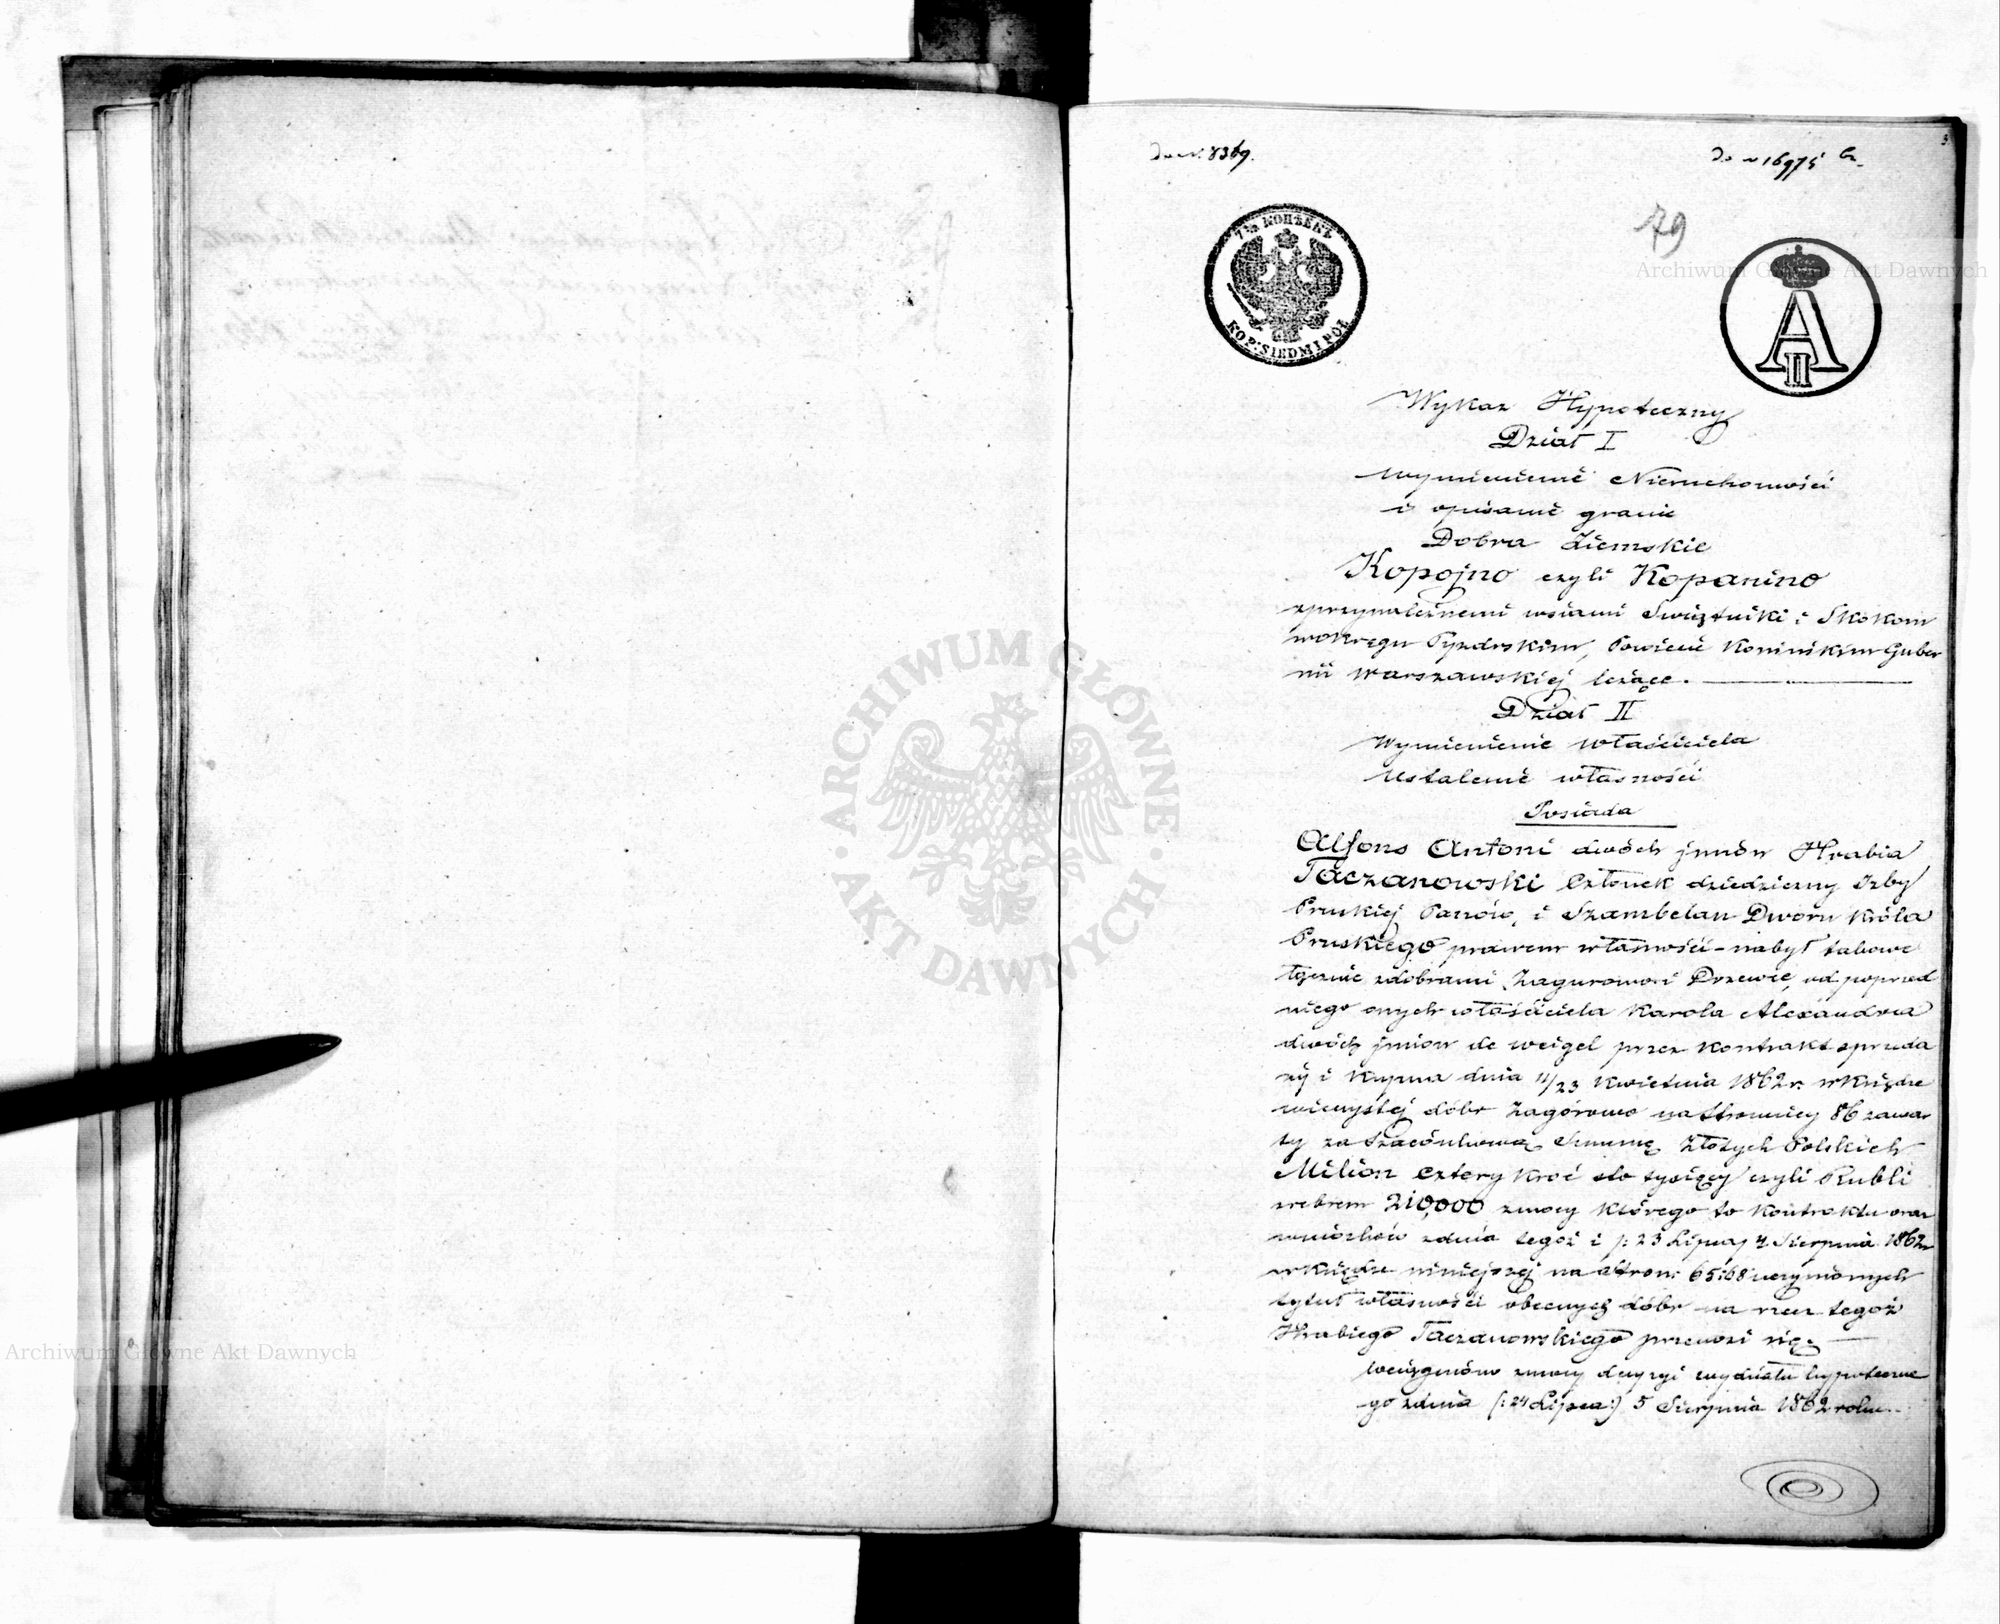 do N. 8369.
do N 16975
79
7½ КОПѢЕКЪ
KOP: SIEDM I PÓŁ
A II
Wykaz Hypoteczny
Dział I
wymienienié Nieruchomości
i opisanié granic
Dobra Ziemskie
Kopojno czyli Kopanino
z przynależnemi wsiami Swiątniki i Skokom
w okręgu Pyzdrskim, Powiecie Konińskim Guber
nii Warszawskiej leżące.
Dział II
Wymienienie właściciela
Ustalenié własności
Posiada
Alfons Antoni dwóch jmión Hrabia
Taczanowski Członek dziedziczny Izby
Pruskiej Panów, i Szambelan Dworu Króla
Pruskiego prawem własności nabył takowe
łącznie z dobrami Zagurowo i Drzewce, od poprzed
niego onych właściciela Karola Alexandra
dwóch jmion de Weigel przez kontrakt sprzeda
ży i kupna dnia 11/23 Kwietnia 1862 r. w Księdze
wieczystej dóbr Zagórowo na stronnicy 86 zawar
ty za szacunkową Summę Złotych Polskich
Milion cztery kroć sto tysięcy czyli Rubli
srebrem 210,000 z mocy którego to kontraktu oraz
wniosków z dnia tegoż i /: 23 Lipca / 4 Sierpnia 1862 r
w Księdze niniejszej na stron: 65 i 68 uczynionych
tytuł własności obecnych dóbr na rzecz tegoż
Hrabiego Taczanowskiego przenosi się.
Wciągnióno z mocy decyzyi wydziału hypoteczne
go z dnia (: 24 Lipca :) 5 Sierpnia 1862 roku.
ARCHIWUM GŁÓWNE AKT DAWNYCH
Archiwum Główne Akt Dawnych
Archiwum Główne Akt Dawnych